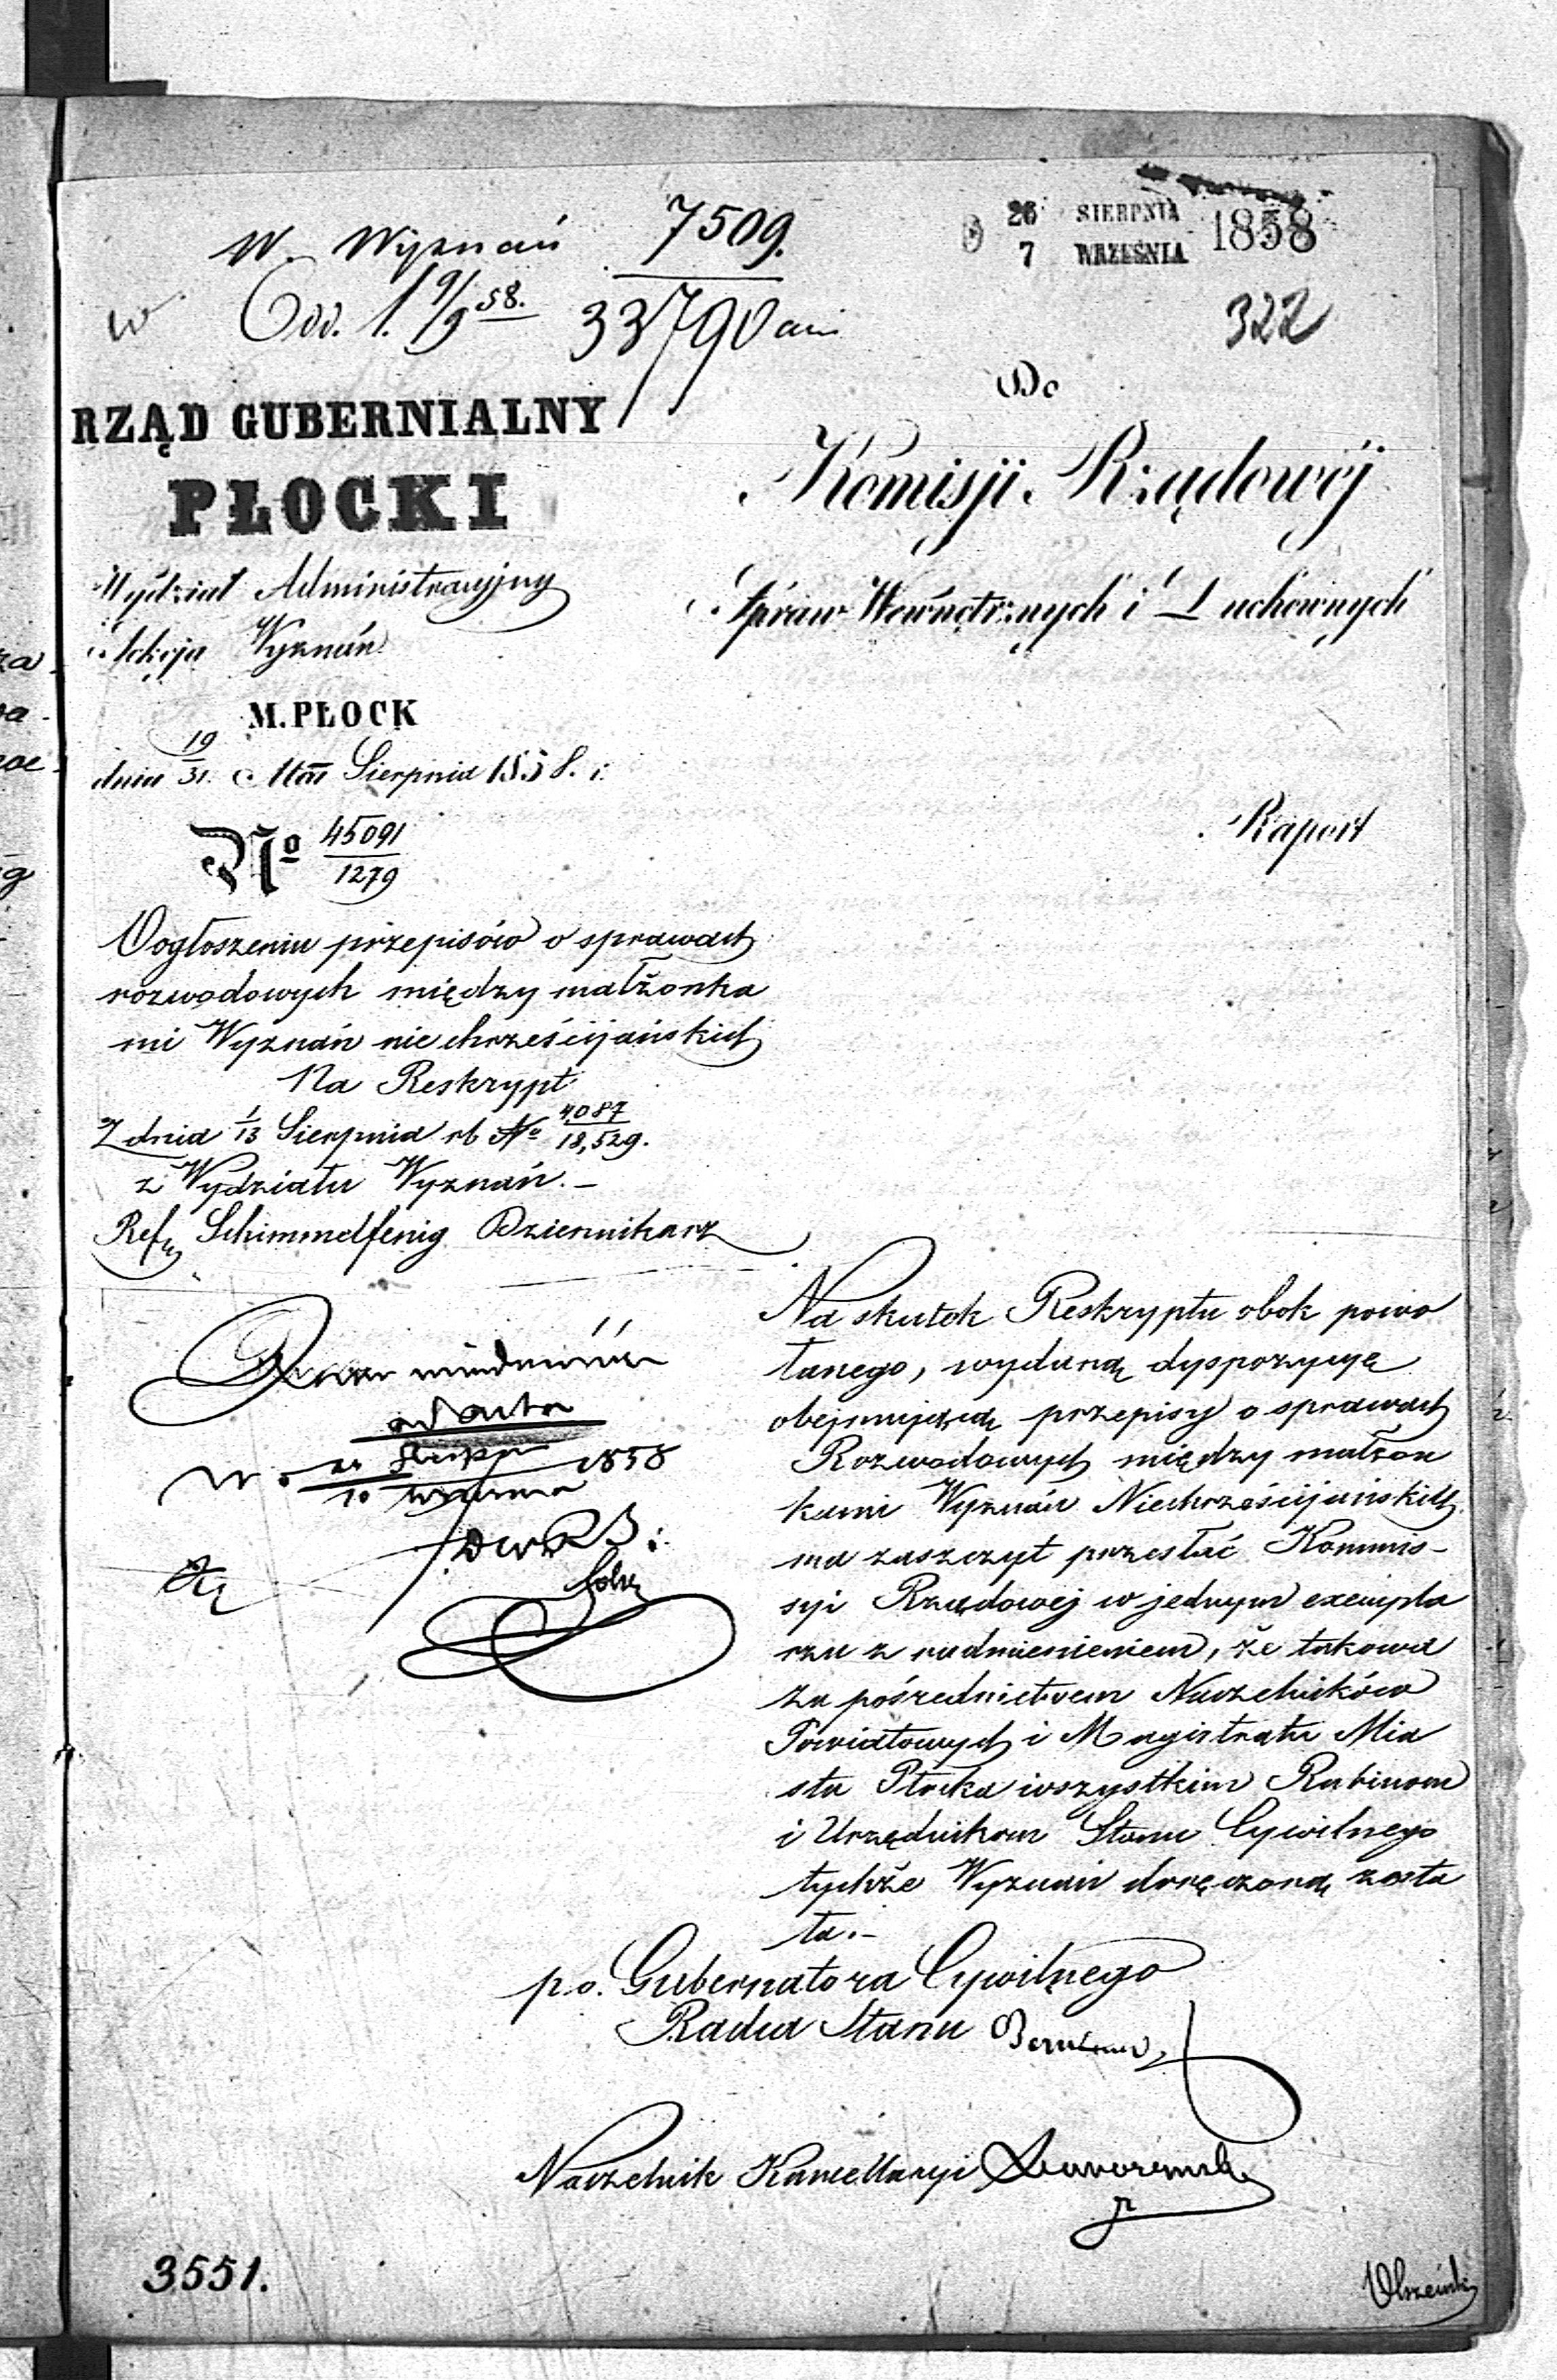 W. Wyznań 7509.
Odd. 1. 9/9 58. 33790
26 SIERPNIA
7 WRZEŚNIA 1858
322
RZĄD GUBERNIALNY
PŁOCKI
Wydział Administracyjny
Sekcja Wyznań
M. PŁOCK
dnia 19/31 Mca Sierpnia 1858. r.
No 45091/1279
O ogłoszeniu przepisów o sprawach
rozwodowych między małżonka
mi Wyznań niechrześcijańskich
Na Reskrypt
Z dnia 1/13 Sierpnia rb No 4087/18,529.
z Wydziału Wyznań. –
Ref. Schimmelfenig Dziennikarz
Do
Komisji Rządowéj
Spraw Wewnętrznych i Duchownych
Raport
Na skutek Reskryptu obok powo
łanego, wydaną dyspozycyę
obejmującą przepisy o sprawach
Rozwodowych między małżon
kami Wyznań Niechrześcijańskich
ma zaszczyt przesłać Kommis-
syi Rządowej w jednym exempla
rzu z nadmienieniem, że takowa
za pośrednictwem Naczelników
Powiatowych i Magistratu Mia
sta Płocka wszystkim Rabinom
i Urzędnikom Stanu Cywilnego
tychże Wyznań doręczoną zosta
ła. –
ad acta
1858
p.o. Gubernatora Cywilnego
Radca Stanu
Naczelnik Kancellaryi
3551.